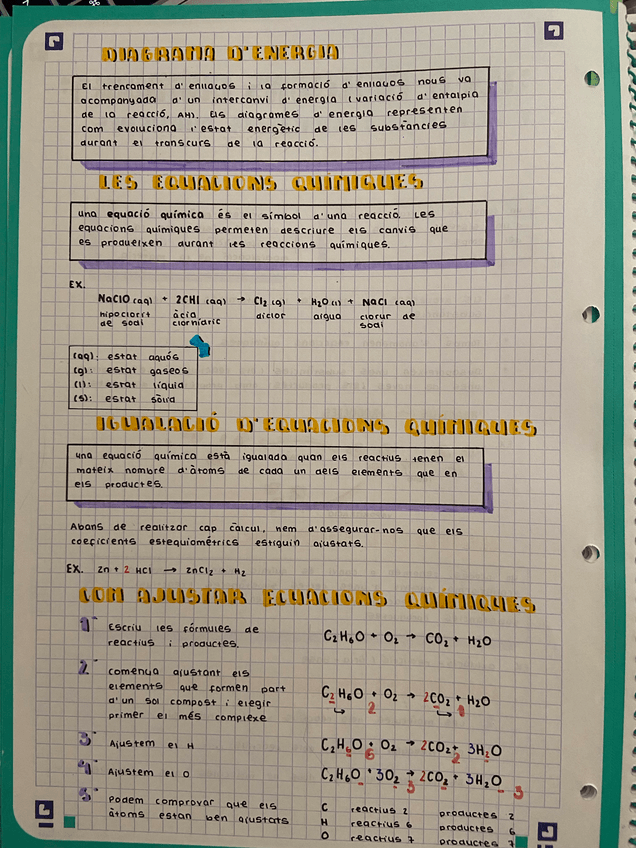 DIAGRAMA D'ENERGIA
El trencament d'enllaços i la formació d'enllaços nous va
acompanyada d'un intercanvi d'energia (variació d'entalpia
de la reacció, ΔH). Els diagrames d'energia representen
com evoluciona l'estat energètic de les substàncies
durant el transcurs de la reacció.
LES EQUACIONS QUÍMIQUES
una equació química és el símbol d'una reacció. Les
equacions químiques permeten descriure els canvis que
es produeixen durant les reaccions químiques.
EX.
NaClO (aq) + 2CHl (aq) → Cl₂ (g) + H₂O (l) + NaCl (aq)
hipoclorit àcid diclor aigua clorur de
de sodi clorhídric sodi
(aq): estat aquós
(g): estat gaseós
(l): estat líquid
(s): estat sòlid
IGUALACIÓ D'EQUACIONS QUÍMIQUES
una equació química està igualada quan els reactius tenen el
mateix nombre d'àtoms de cada un dels elements que en
els productes.
Abans de realitzar cap càlcul, hem d'assegurar-nos que els
coeficients estequiomètrics estiguin ajustats.
EX. Zn + 2 HCl → ZnCl₂ + H₂
COM AJUSTAR ECUACIONS QUÍMIQUES
1- Escriu les fórmules de
reactius i productes.
C₂H₆O + O₂ → CO₂ + H₂O
2- comença ajustant els
elements que formen part
d'un sol compost i elegir
primer el més complexe
C₂H₆O + O₂ → 2CO₂ + H₂O
2 1
3- Ajustem el H
C₂H₆O + O₂ → 2CO₂ + 3H₂O
6 2
4- Ajustem el O
C₂H₆O + 3O₂ → 2CO₂ + 3H₂O
3 3
5- Podem comprovar que els
àtoms estan ben ajustats
C reactius 2 productes 2
H reactius 6 productes 6
O reactius 7 productes 7